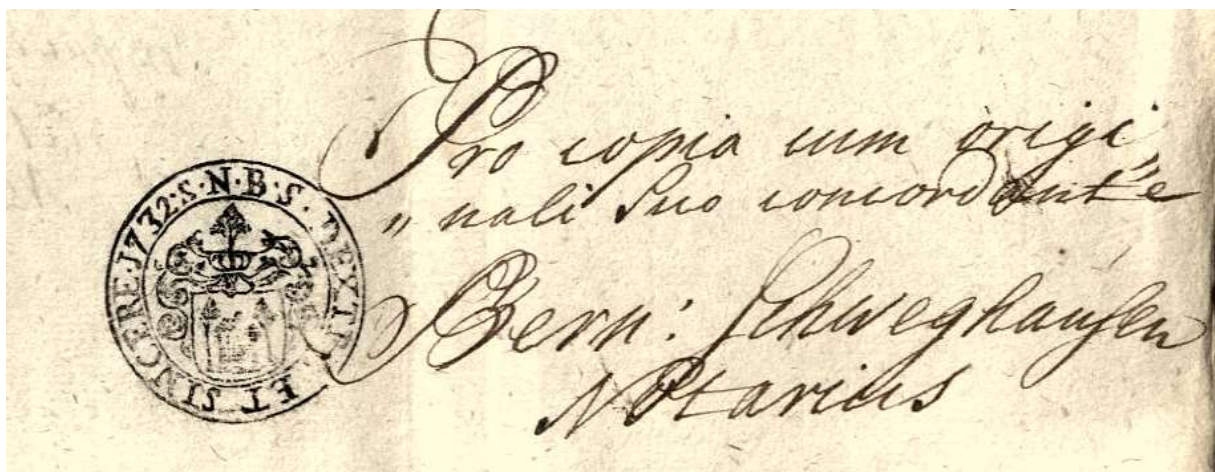 S·N·B·S· DEXTRE ET SINCERE·1732·
Pro copia cum origi„
„nali Suo concordante
Bern: Schweghausen
Notarius